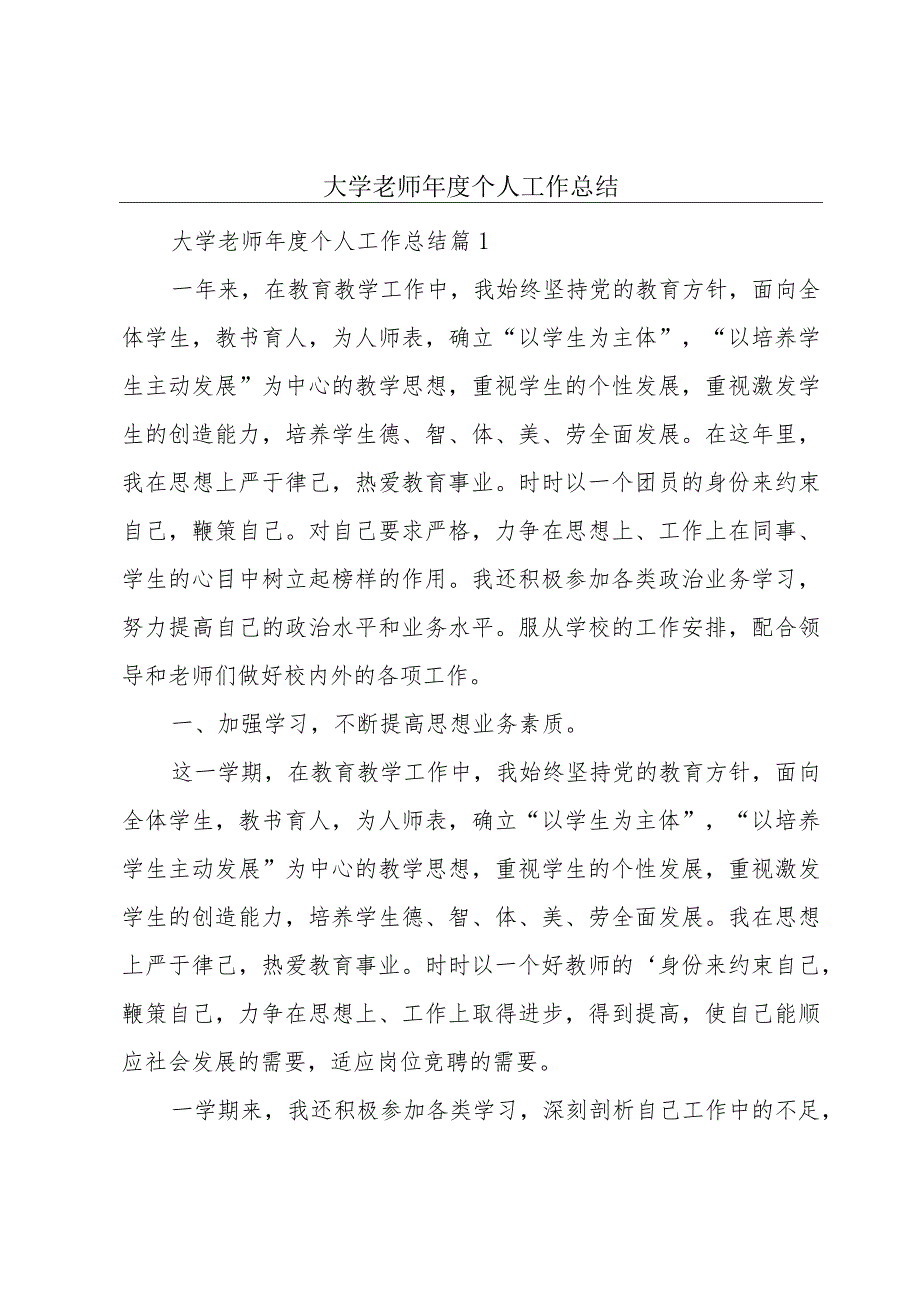 大学老师年度个人工作总结
大学老师年度个人工作总结篇1
一年来，在教育教学工作中，我始终坚持党的教育方针，面向全
体学生，教书育人，为人师表，确立“以学生为主体”，“以培养学
生主动发展”为中心的教学思想，重视学生的个性发展，重视激发学
生的创造能力，培养学生德、智、体、美、劳全面发展。在这年里，
我在思想上严于律己，热爱教育事业。时时以一个团员的身份来约束
自己，鞭策自己。对自己要求严格，力争在思想上、工作上在同事、
学生的心目中树立起榜样的作用。我还积极参加各类政治业务学习，
努力提高自己的政治水平和业务水平。服从学校的工作安排，配合领
导和老师们做好校内外的各项工作。
一、加强学习，不断提高思想业务素质。
这一学期，在教育教学工作中，我始终坚持党的教育方针，面向
全体学生，教书育人，为人师表，确立“以学生为主体”，“以培养
学生主动发展”为中心的教学思想，重视学生的个性发展，重视激发
学生的创造能力，培养学生德、智、体、美、劳全面发展。我在思想
上严于律己，热爱教育事业。时时以一个好教师的‘身份来约束自己，
鞭策自己，力争在思想上、工作上取得进步，得到提高，使自己能顺
应社会发展的需要，适应岗位竞聘的需要。
一学期来，我还积极参加各类学习，深刻剖析自己工作中的不足，